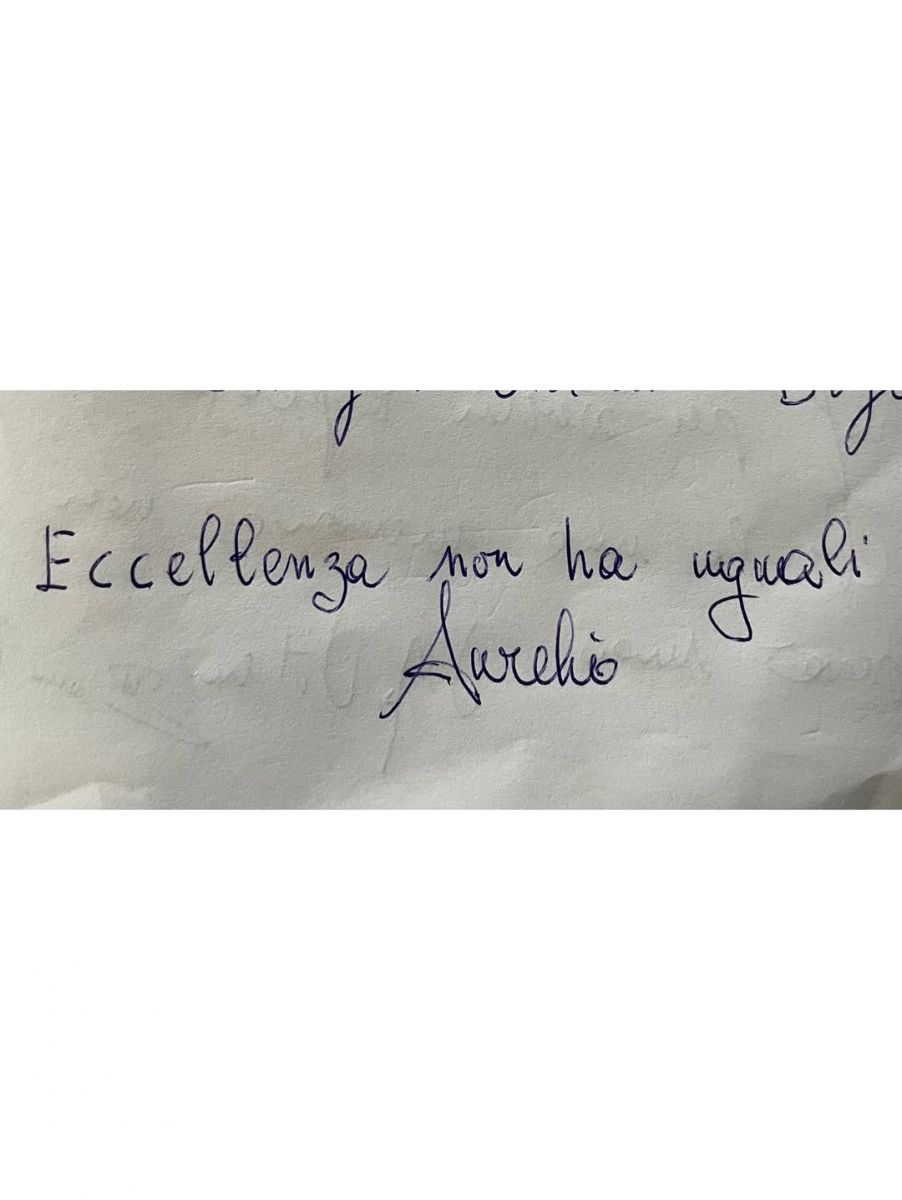 Eccellenza non ha uguali
Aurelio